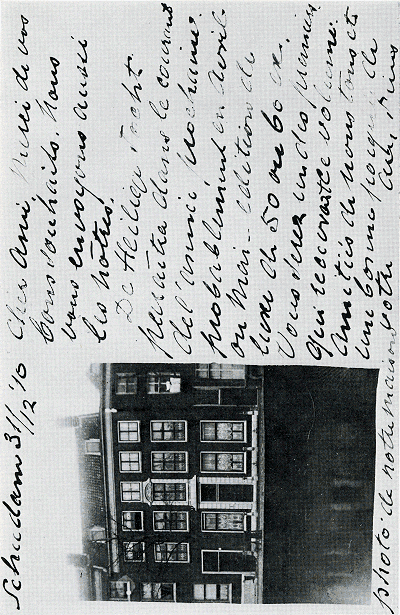 Schiedam 31/12 '10
Cher Ami, Merci de vos
bons souhaits. Nous
vous envoyons aussi
les nôtres.
De Heilige Tocht
paraîtra dans le courant
de l'année prochaine
probablement en Avril
ou Mai — édition de
luxe de 50 ou 60 ex.
Vous serez un des premiers
qui recevrait le volume.
Amitiés de nous tous et
une bonne poignée de
votre ami
photo de notre maison